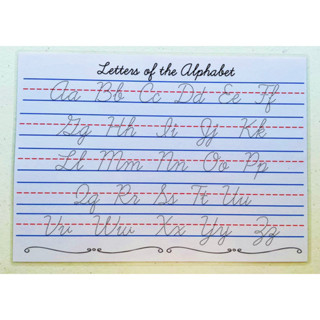 Letters of the Alphabet
Aa Bb Cc Dd Ee Ff
Gg Hh Ii Jj Kk
Ll Mm Nn Oo Pp
Qq Rr Ss Tt Uu
Vv Ww Xx Yy Zz